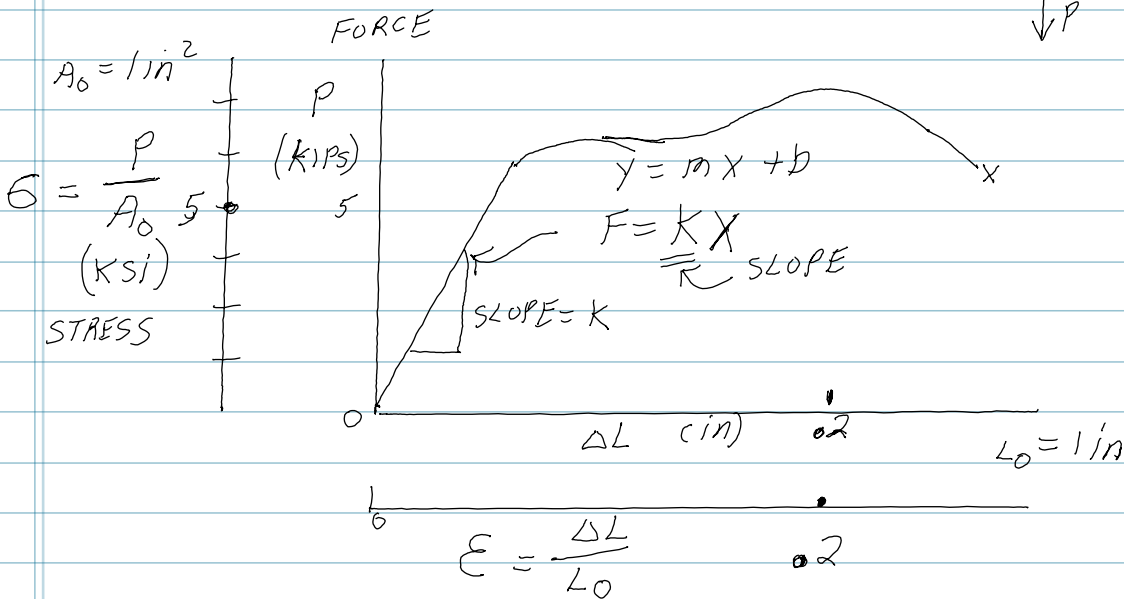 FORCE
↓ P
A₀ = 1 in²
P
(KIPS)
5
σ = P / A₀
5
(KSi)
STRESS
y = mx + b
F = KX
SLOPE
SLOPE = K
x
0
ΔL (in)
.2
L₀ = 1 in
0
ε = ΔL / L₀
.2